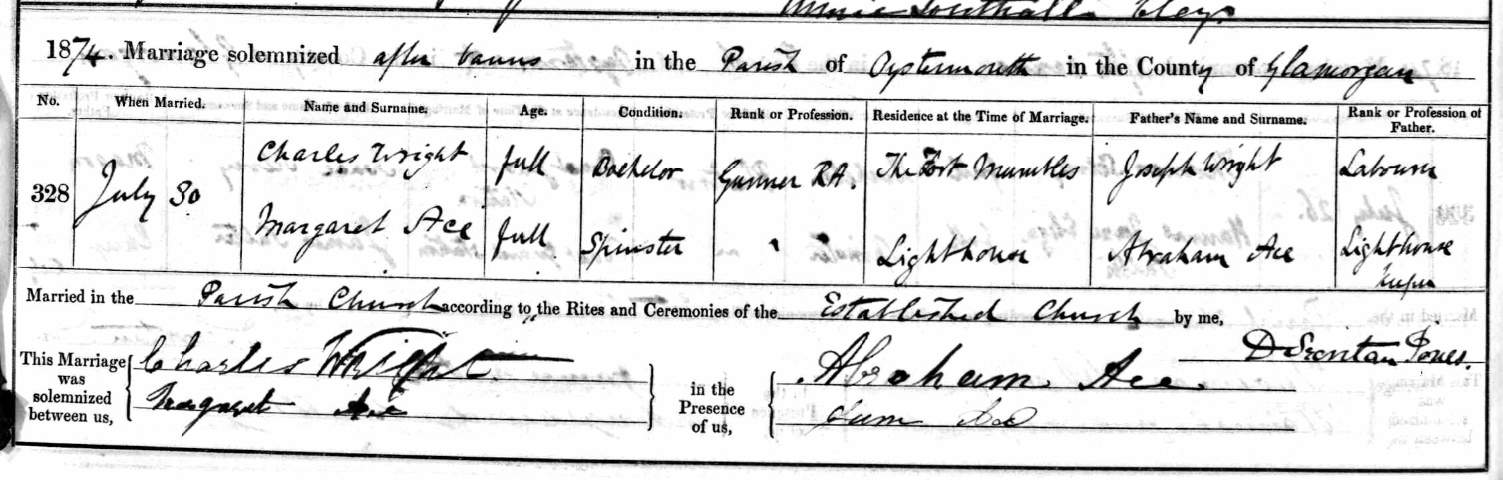 Clerg.
1874. Marriage solemnized after banns in the Parish of Oystermouth in the County of Glamorgan
No. When Married. Name and Surname. Age. Condition. Rank or Profession. Residence at the Time of Marriage. Father's Name and Surname. Rank or Profession of Father.
328 July 30 Charles Wright full Bachelor Gunner RA. The Fort Mumbles Joseph Wright Labourer
Margaret Ace full Spinster Lighthouse Abraham Ace Lighthouse Keeper
Married in the Parish Church according to the Rites and Ceremonies of the Established Church by me,
D Secretan Jones.
This Marriage was solemnized between us, Charles Wright
Margaret Ace
in the Presence of us, Abraham Ace.
Ace